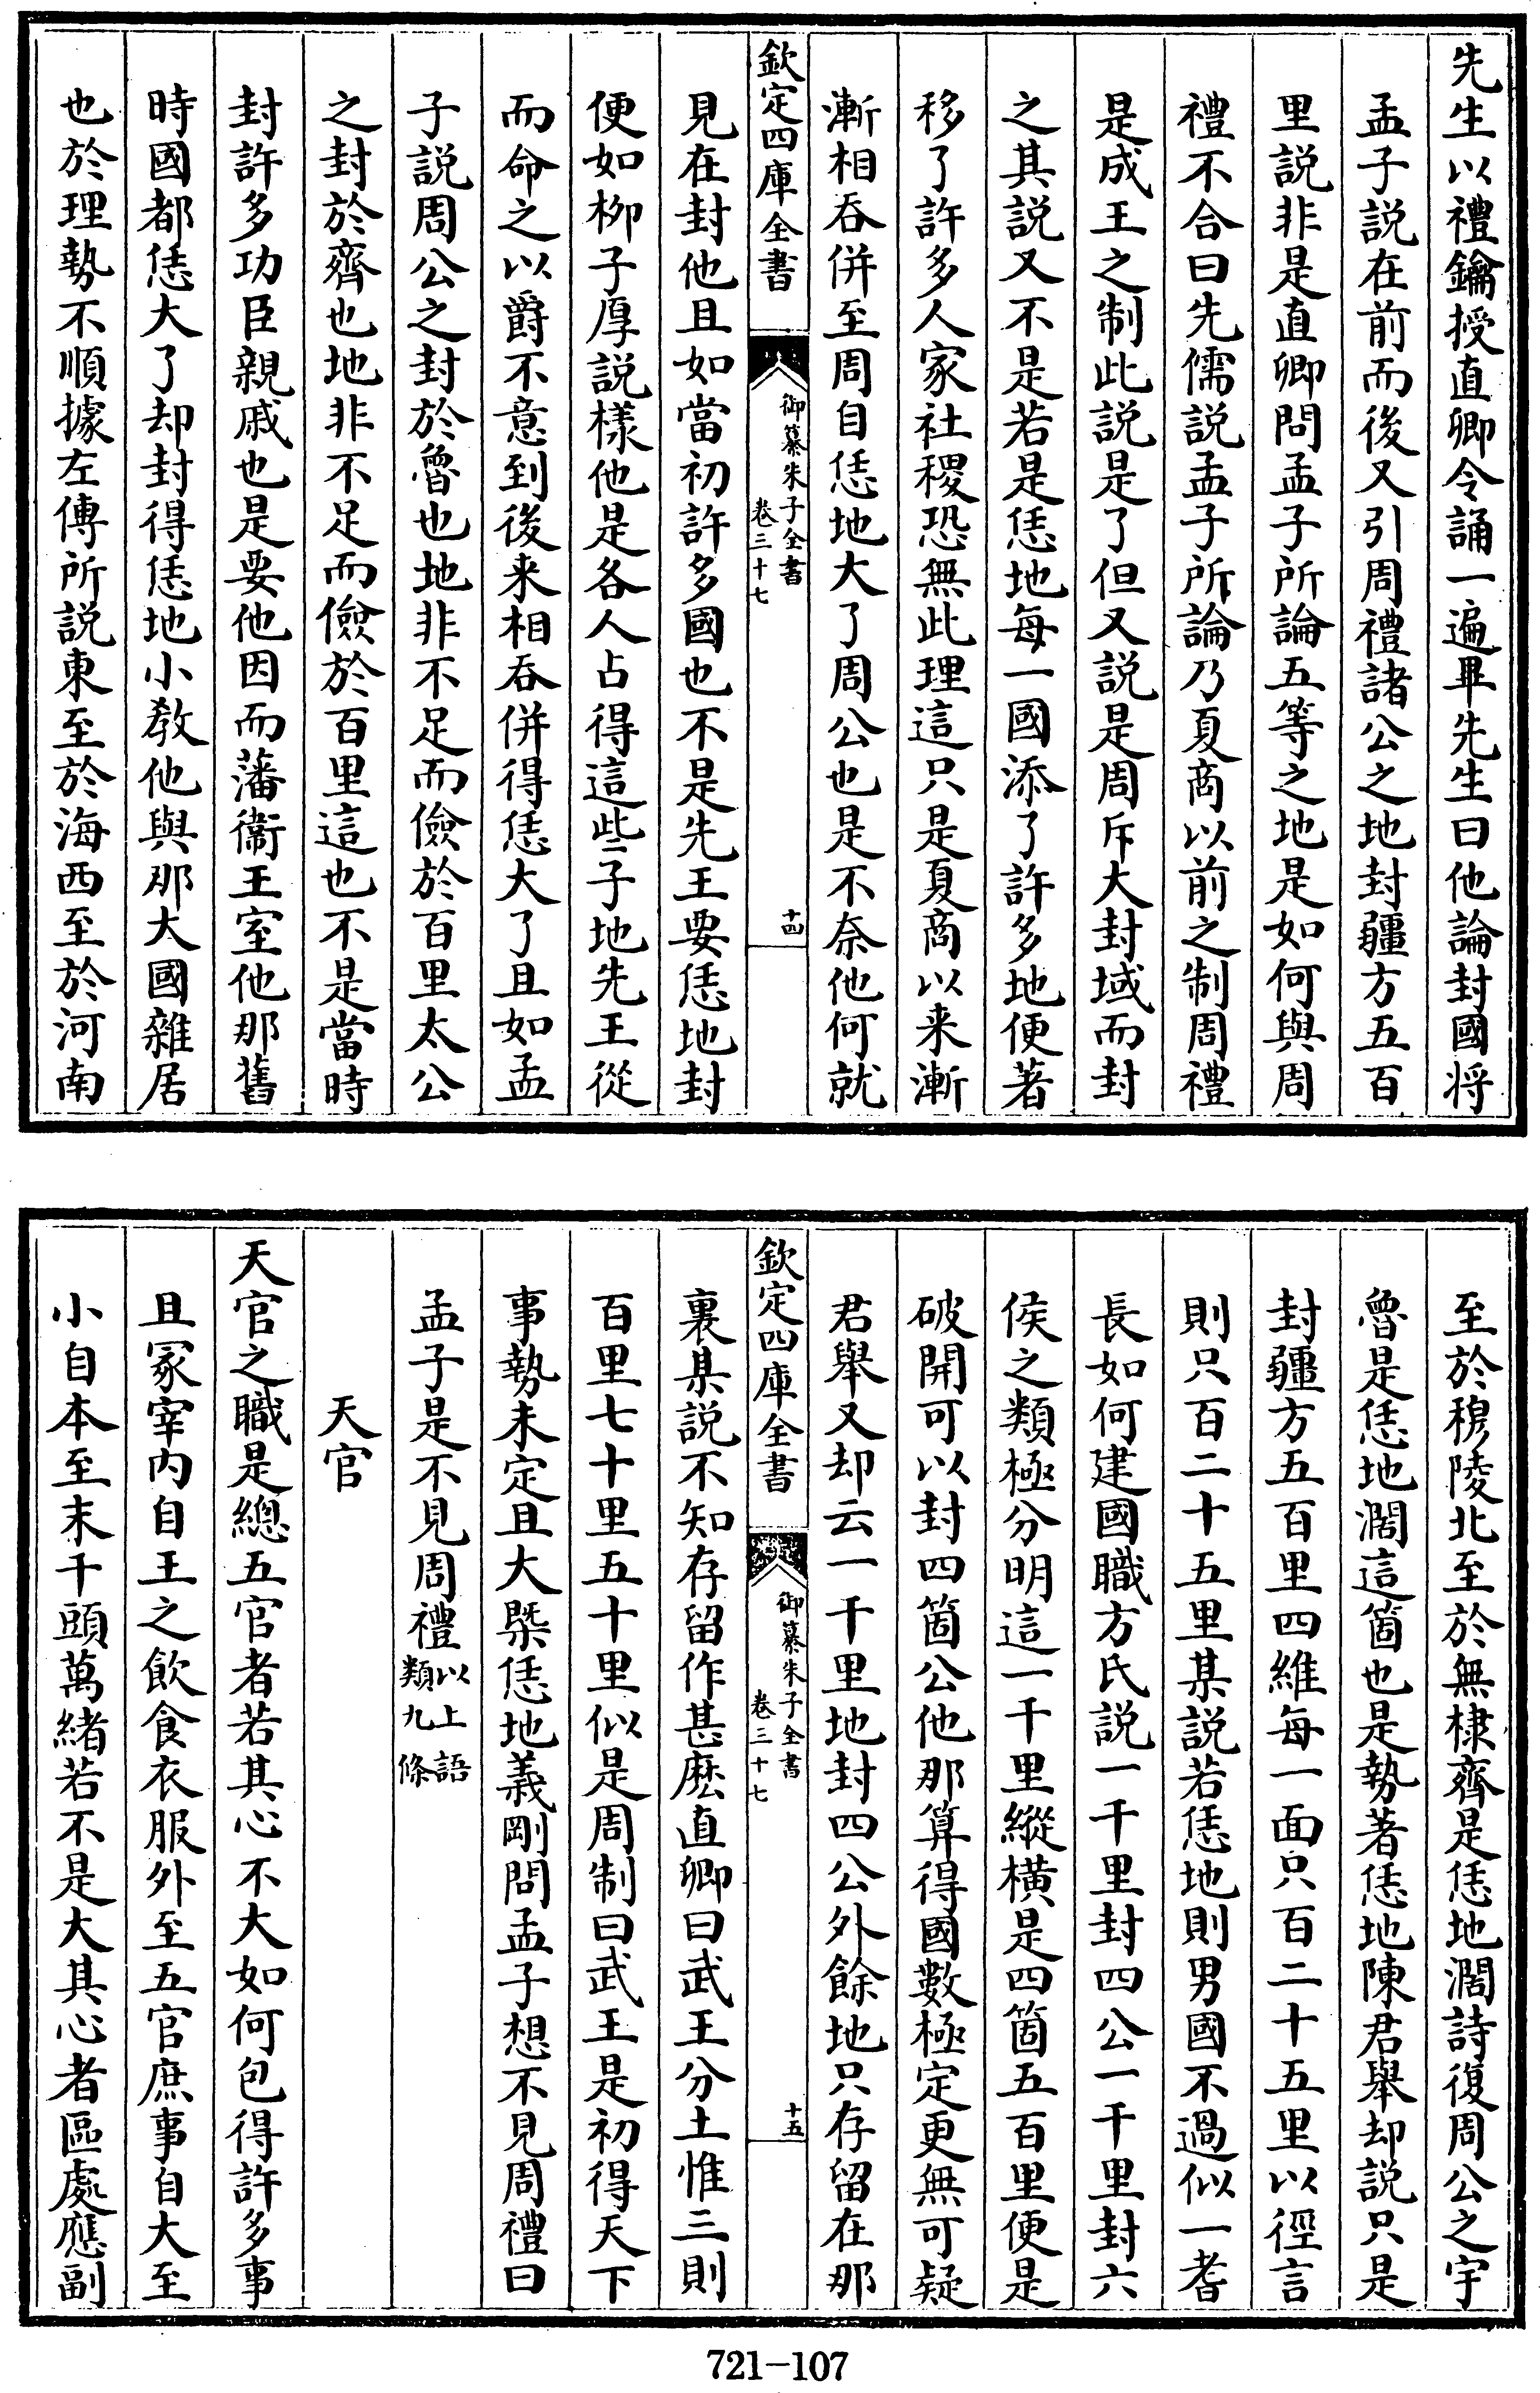 先生以禮鑰授直卿令誦一遍畢先生曰他論封國將
孟子説在前而後又引周禮諸公之地封疆方五百
里説非是直卿問孟子所論五等之地是如何與周
禮不合曰先儒説孟子所論乃夏商以前之制周禮
是成王之制此説是了但又説是周斥大封域而封
之其説又不是若是恁地每一國添了許多地便著
移了許多人家社稷恐無此理這只是夏商以来漸
漸相吞併至周自恁地大了周公也是不奈他何就
欽定四庫全書
御纂朱子全書
卷三十七
十四
見在封他且如當初許多國也不是先王要恁地封
便如柳子厚説樣他是各人占得這些子地先王從
而命之以爵不意到後来相吞併得恁大了且如孟
子説周公之封於魯也地非不足而儉於百里太公
之封於齊也地非不足而儉於百里這也不是當時
封許多功臣親戚也是要他因而藩衞王室他那舊
時國都恁大了却封得恁地小教他與那大國雜居
也於理勢不順據左傳所説東至於海西至於河南
至於穆陵北至於無棣齊是恁地濶詩復周公之宇
魯是恁地濶這箇也是勢著恁地陳君舉却説只是
封疆方五百里四維每一面只百二十五里以徑言
則只百二十五里某説若恁地則男國不過似一耆
長如何建國職方氏説一千里封四公一千里封六
侯之類極分明這一千里縱横是四箇五百里便是
破開可以封四箇公他那算得國數極定更無可疑
君舉又却云一千里地封四公外餘地只存留在那
欽定四庫全書
御纂朱子全書
卷三十七
十五
裏某説不知存留作甚麽直卿曰武王分土惟三則
百里七十里五十里似是周制曰武王是初得天下
事勢未定且大槩恁地義剛問孟子想不見周禮曰
孟子是不見周禮以上語類九條
天官
天官之職是總五官者若其心不大如何包得許多事
且冢宰内自王之飲食衣服外至五官庶事自大至
小自本至末千頭萬緒若不是大其心者區處應副
721-107